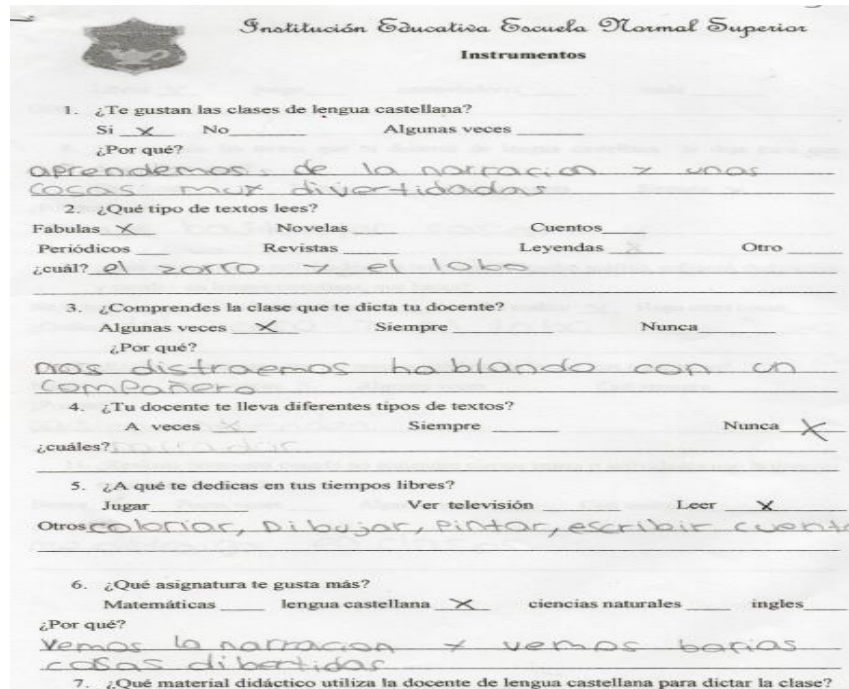 Institución Educativa Escuela Normal Superior
Instrumentos
1. ¿Te gustan las clases de lengua castellana?
Si X No____ Algunas veces ____
¿Por qué?
aprendemos. de la narracion y unas
cosas muy divertidadas
2. ¿Qué tipo de textos lees?
Fabulas X Novelas ____ Cuentos____
Periódicos ____ Revistas ____ Leyendas X Otro ____
¿cuál? el zorro y el lobo
3. ¿Comprendes la clase que te dicta tu docente?
Algunas veces X Siempre ____ Nunca____
¿Por qué?
nos distraemos hablando con un
compañero
4. ¿Tu docente te lleva diferentes tipos de textos?
A veces X Siempre ____ Nunca X
¿cuáles?
5. ¿A qué te dedicas en tus tiempos libres?
Jugar____ Ver televisión ____ Leer X
Otros coloriar, Dibujar, Pintar, escribir cuent
6. ¿Qué asignatura te gusta más?
Matemáticas ____ lengua castellana X ciencias naturales ____ ingles____
¿Por qué?
Vemos la narracion y vemos barias
cosas dibertidas
7. ¿Qué material didáctico utiliza la docente de lengua castellana para dictar la clase?